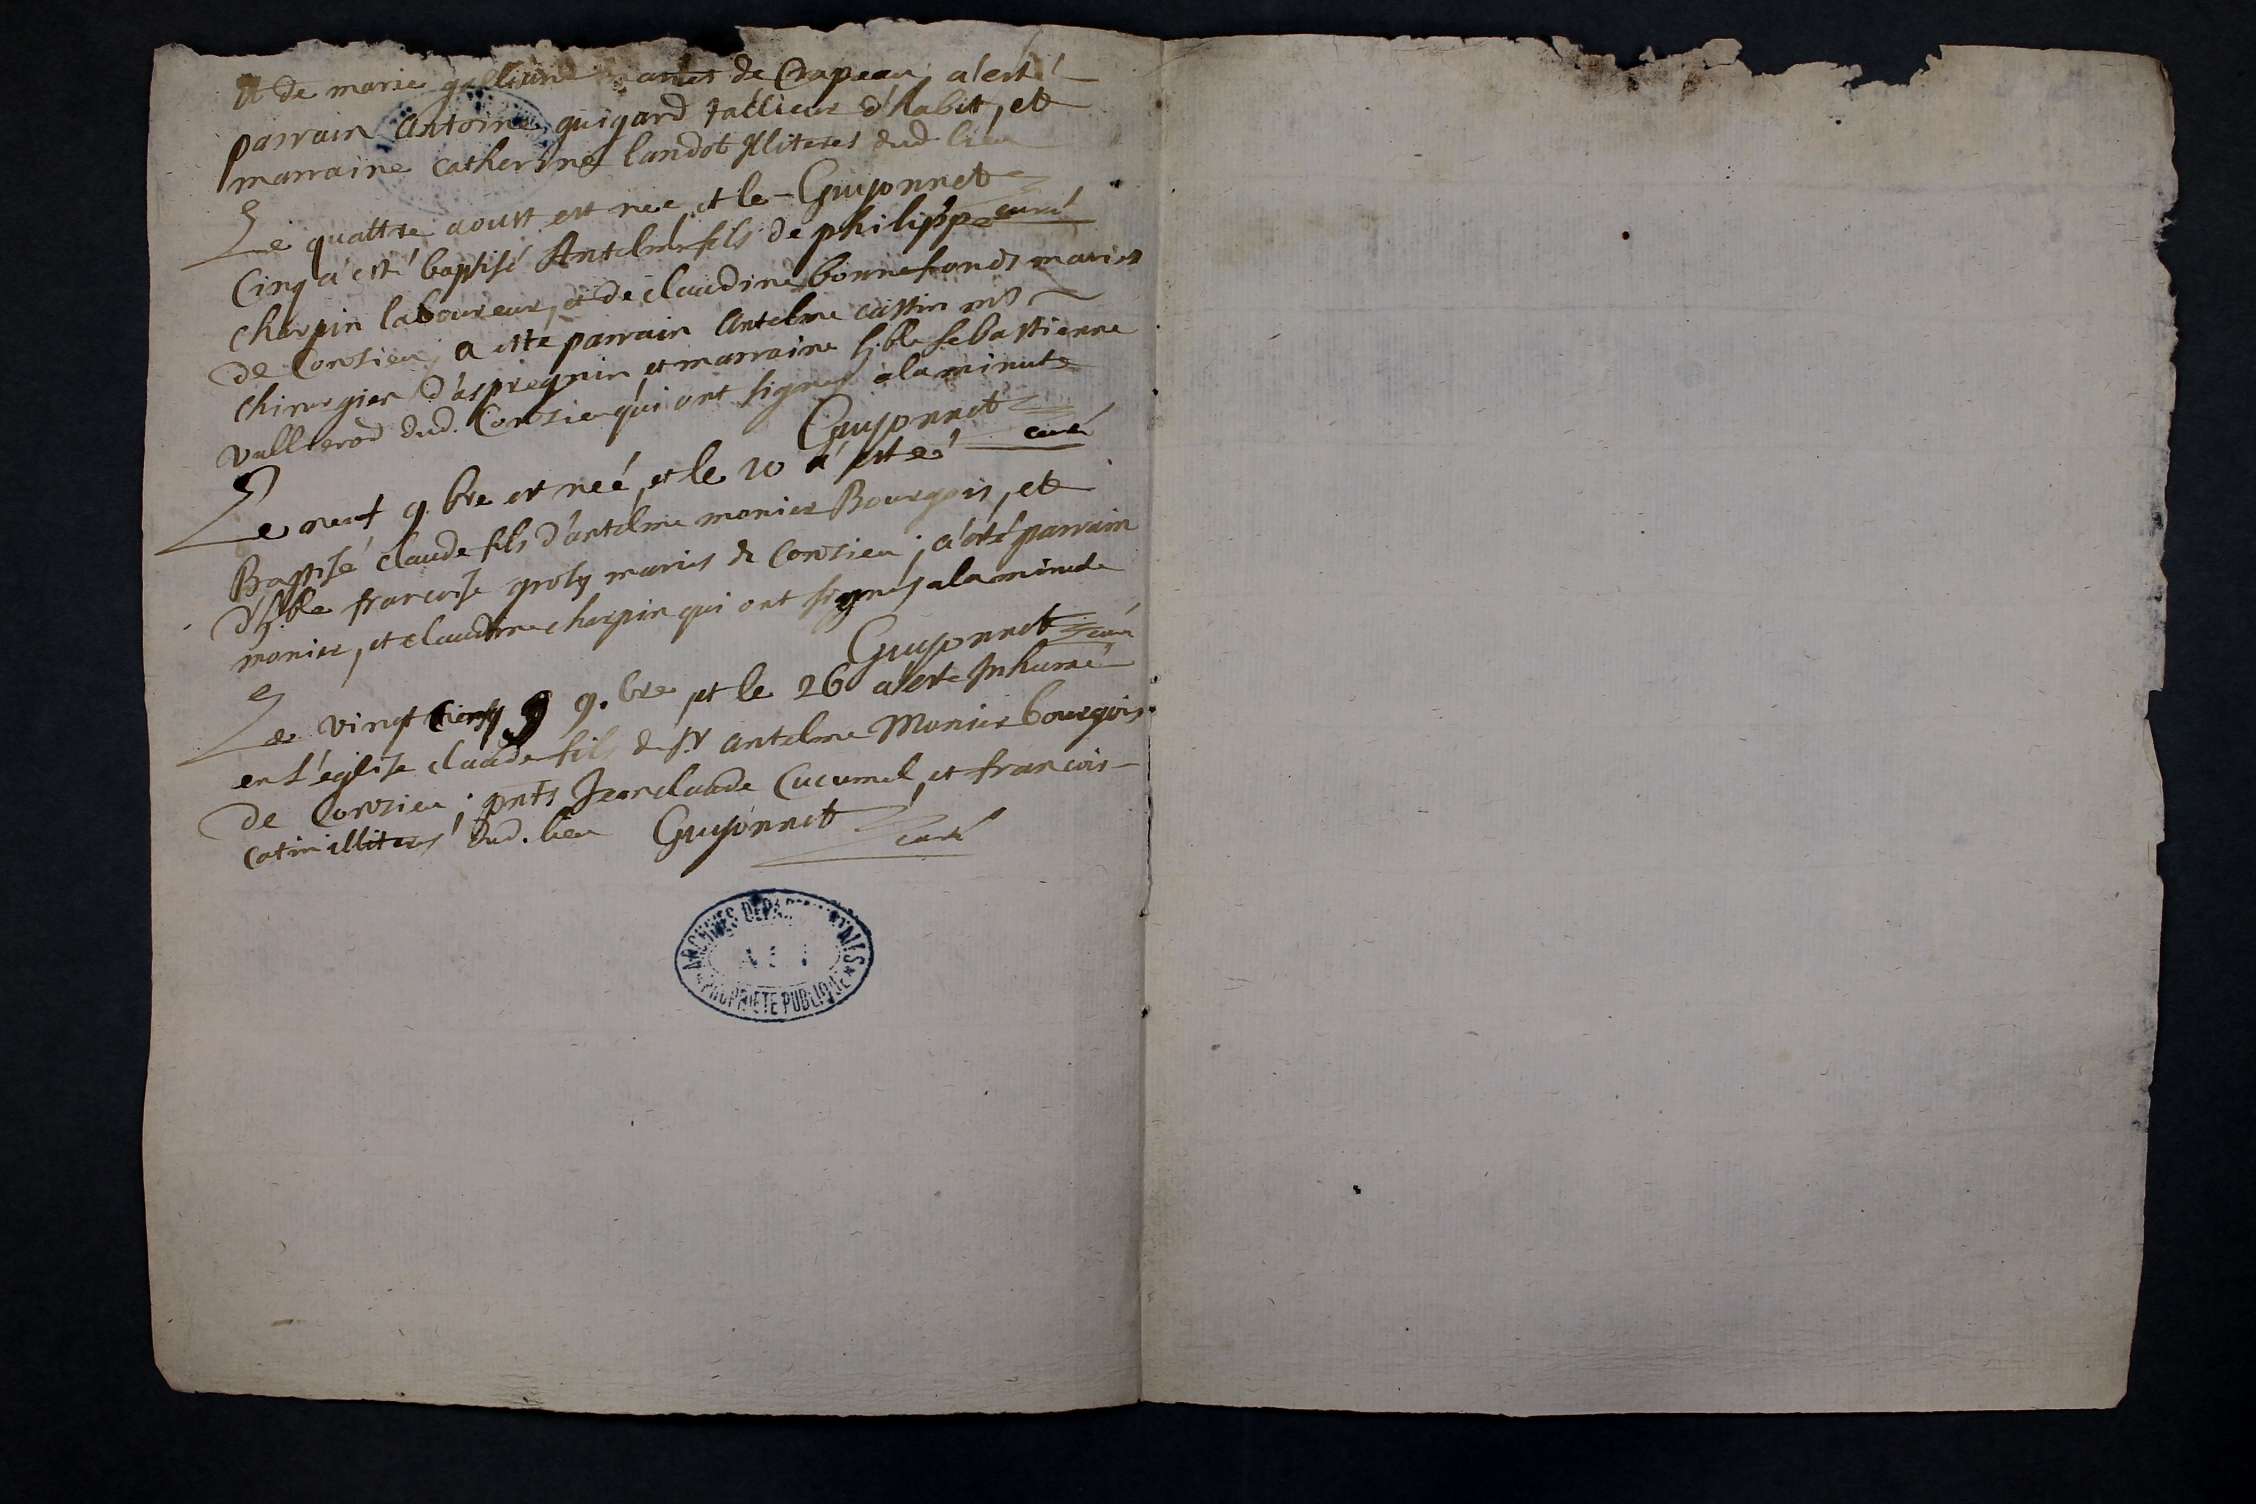 et de marie de Crapeau, a'esté
parrain Antoine guigard tallieur d'habit, et
marraine catherine landot Illiteres dud. lieu
Guyonnet curé
Le quattre aoust est née et le
Cinq a esté baptisé Antelme fils de philippe
charpin laboureur, et de claudine bonnefonds maries
de Conzieu, a este parrain Antelme cattin mre
chirurgien d'aspregnin et marraine h.ble sebastienne
vullierod dud. Conzieu qui ont signes a la minute
Guyonnet curé
Le neuf 9.bre est neé, et le 10 a'esteé
Baptisé claude fils d'antelme monier Bourgois, et
d'h.ble francoise proty maries de Conzieu; a'esté parrain
monier, et claudine charpin qui ont signés a la minute
Guyonnet curé
Le vingt cinq 9.bre et le 26 a'esté Inhumé
en l'eglise claude fils de sr antelme Monier bourgois
de Conzieu; pnts Jean claude Cucumel, et francois
catin illiteres dud. lieu Guyonnet curé
ARCHIVES DEPARTEMENTALES
AIN
PROPRIETE PUBLIQUE